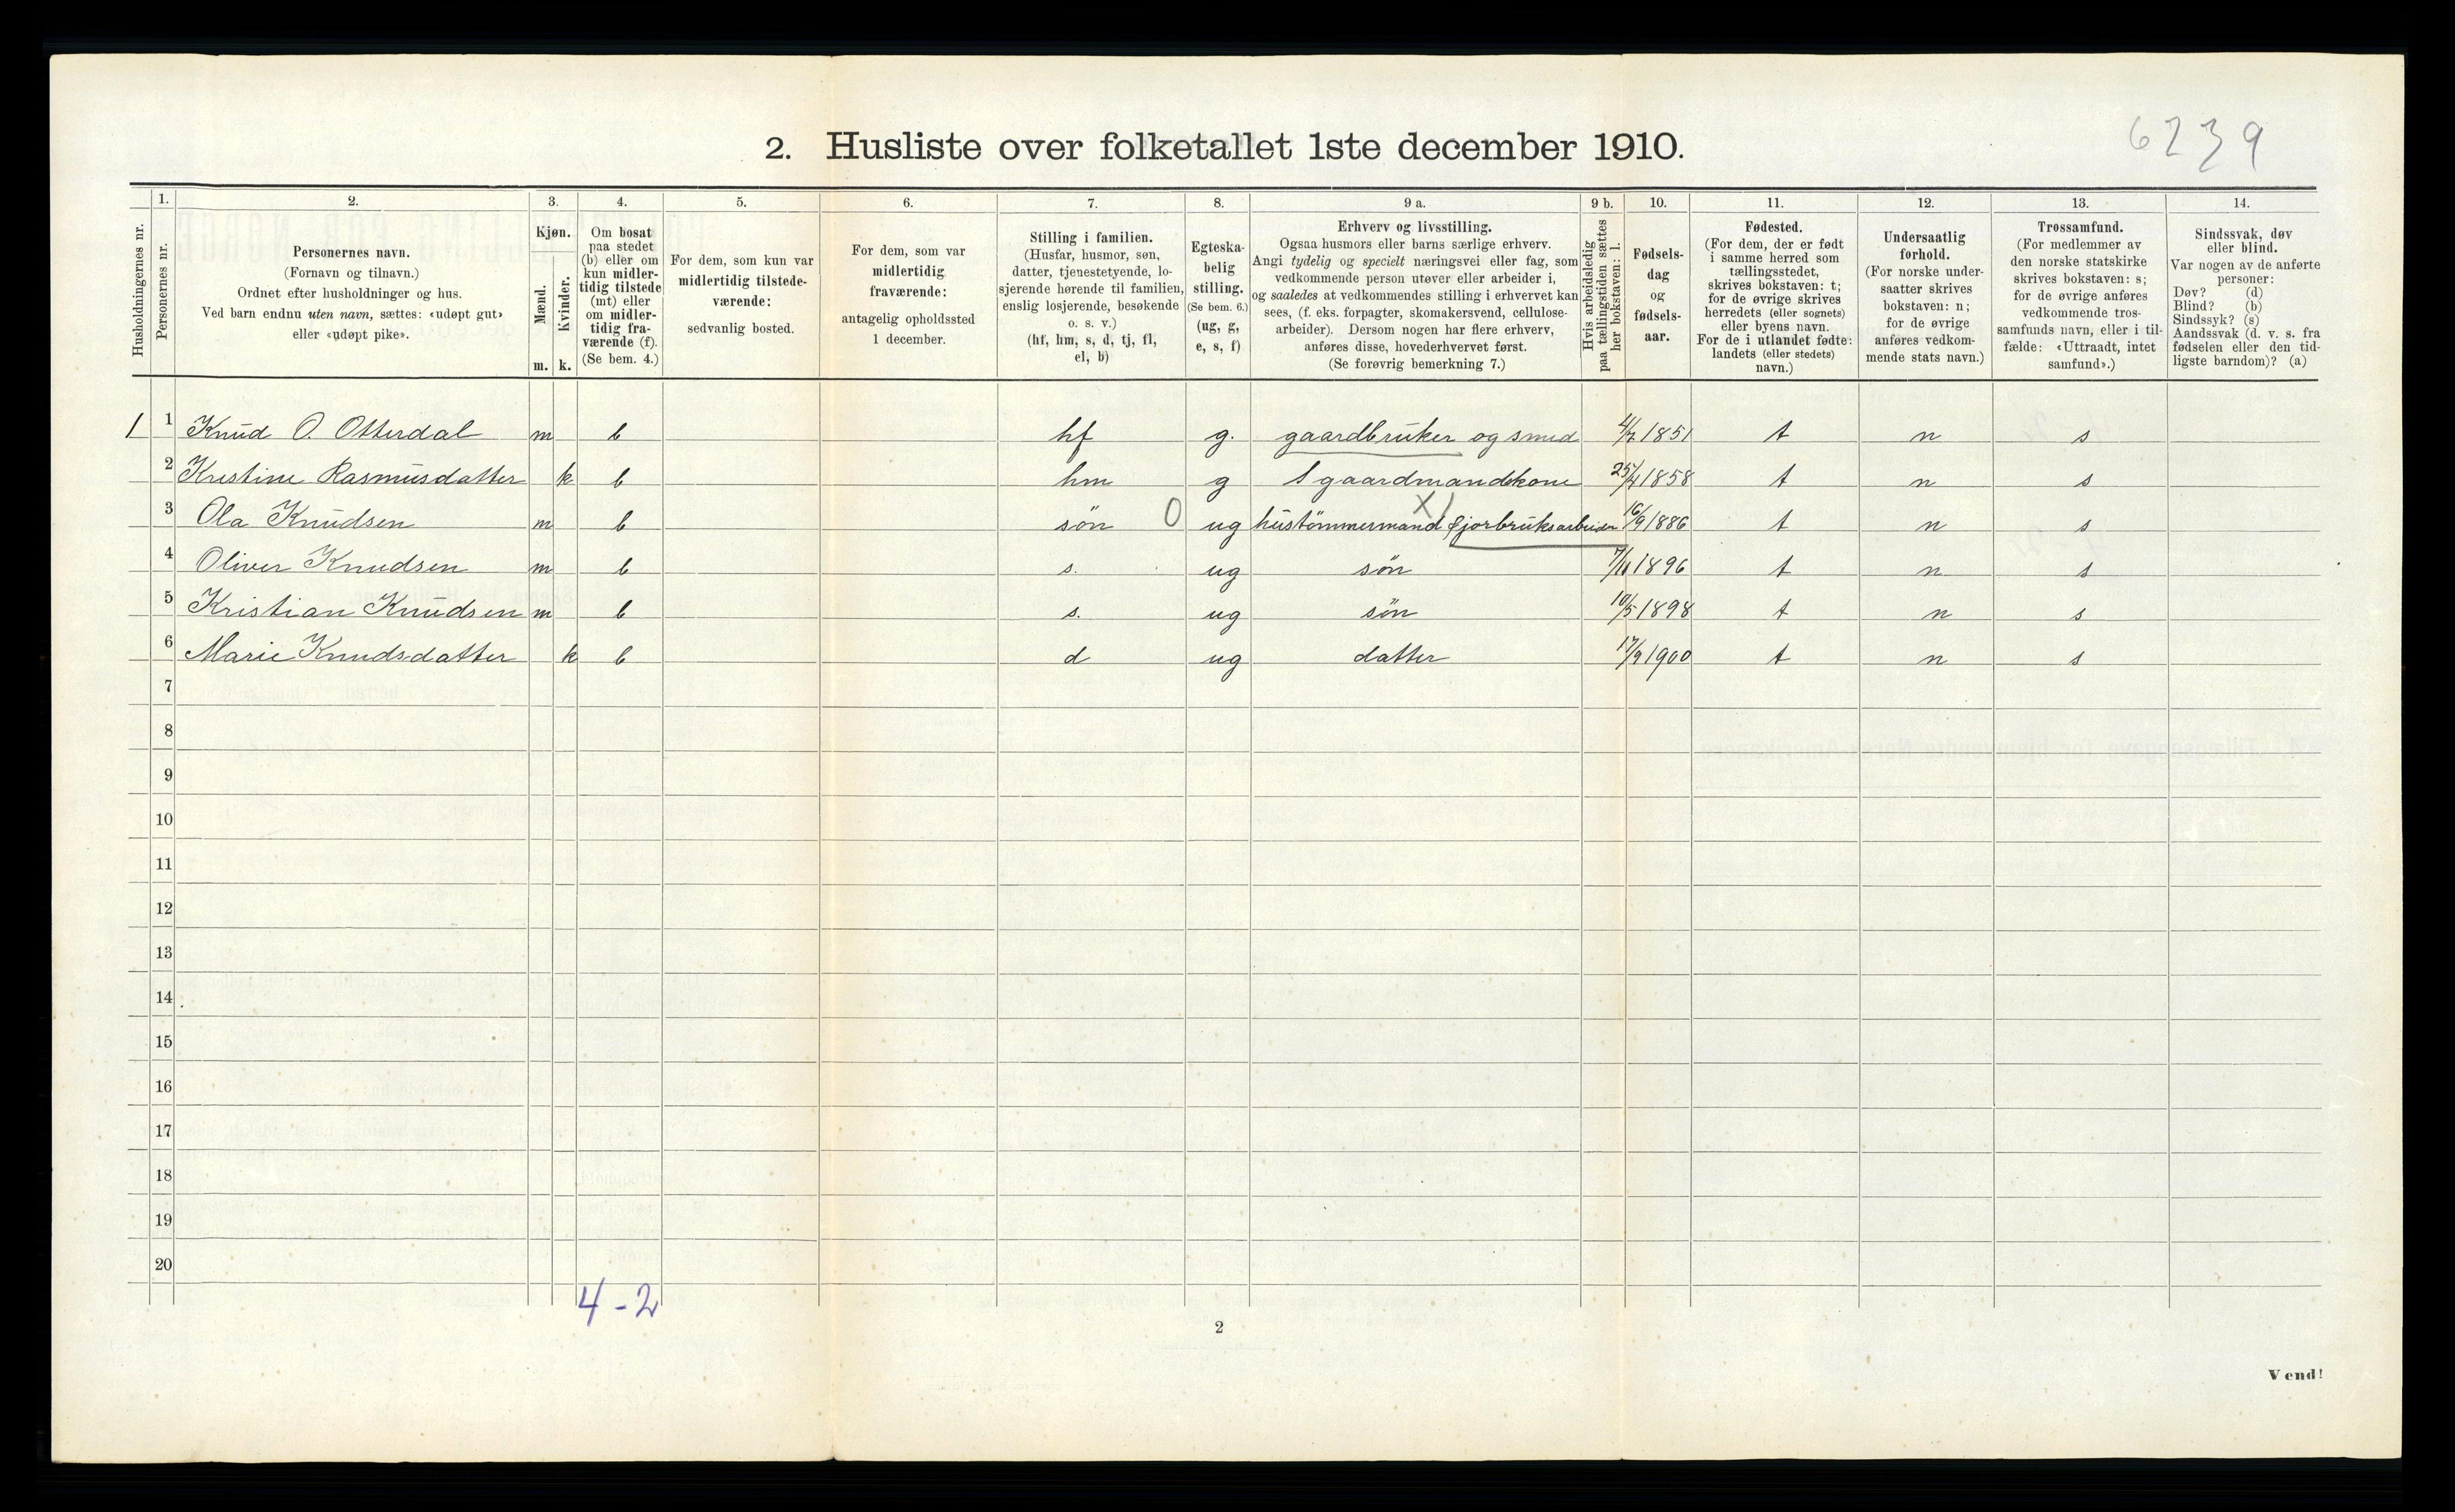 6239
2. Husliste over folketallet 1ste december 1910.
Husholdningernes nr.
1. Personernes nr.
2.
Personernes navn.
(Fornavn og tilnavn.)
Ordnet efter husholdninger og hus.
Ved barn endnu uten navn, sættes: «udøpt gut»
eller «udøpt pike».
3.
Kjøn.
Mænd. Kvinder.
m. k.
4.
Om bosat
paa stedet
(b) eller om
kun midler-
tidig tilstede
(mt) eller
om midler-
tidig fra-
værende (f).
(Se bem. 4.)
5.
For dem, som kun var
midlertidig tilstede-
værende:
sedvanlig bosted.
6.
For dem, som var
midlertidig
fraværende:
antagelig opholdssted
1 december.
7.
Stilling i familien.
(Husfar, husmor, søn,
datter, tjenestetyende, lo-
sjerende hørende til familien,
enslig losjerende, besøkende
o. s. v.)
(hf, hm, s, d, tj, fl,
el, b)
8.
Egteska-
belig
stilling.
(Se bem. 6.)
(ug, g,
e, s, f)
9 a.
Erhverv og livsstilling.
Ogsaa husmors eller barns særlige erhverv.
Angi tydelig og specielt næringsvei eller fag, som
vedkommende person utøver eller arbeider i,
og saaledes at vedkommendes stilling i erhvervet kan
sees, (f. eks. forpagter, skomakersvend, cellulose-
arbeider). Dersom nogen har flere erhverv,
anføres disse, hovederhvervet først.
(Se forøvrig bemerkning 7.)
9 b.
Hvis arbeidsledig
paa tællingstiden sættes
her bokstaven: l.
10.
Fødsels-
dag
og
fødsels-
aar.
11.
Fødested.
(For dem, der er født
i samme herred som
tællingsstedet,
skrives bokstaven: t;
for de øvrige skrives
herredets (eller sognets)
eller byens navn.
For de i utlandet fødte:
landets (eller stedets)
navn.)
12.
Undersaatlig
forhold.
(For norske under-
saatter skrives
bokstaven: n;
for de øvrige
anføres vedkom-
mende stats navn.)
13.
Trossamfund.
(For medlemmer av
den norske statskirke
skrives bokstaven: s;
for de øvrige anføres
vedkommende tros-
samfunds navn, eller i til-
fælde: «Uttraadt, intet
samfund».)
14.
Sindssvak, døv
eller blind.
Var nogen av de anførte
personer:
Døv? (d)
Blind? (b)
Sindssyk? (s)
Aandssvak (d. v. s. fra
fødselen eller den tid-
ligste barndom)? (a)
1 1 Knud O. Otterdal m b hf g. gaardbruker og smed 4/7 1851 t n s
2 Kristine Rasmusdatter k b hm g gaardmandskone 25/4 1858 t n s
3 Ola Knudsen m b søn 0 ug hustømmermand X) gjorbruksarbeider 16/9 1886 t n s
4 Oliver Knudsen m b s. ug søn 7/11 1896 t n s
5 Kristian Knudsen m b s. ug søn 10/5 1898 t n s
6 Marie Knudsdatter k b d ug datter 17/9 1900 t n s
7
8
9
10
11
12
13
14
15
16
17
18
19
20
4-2
2
Vend!